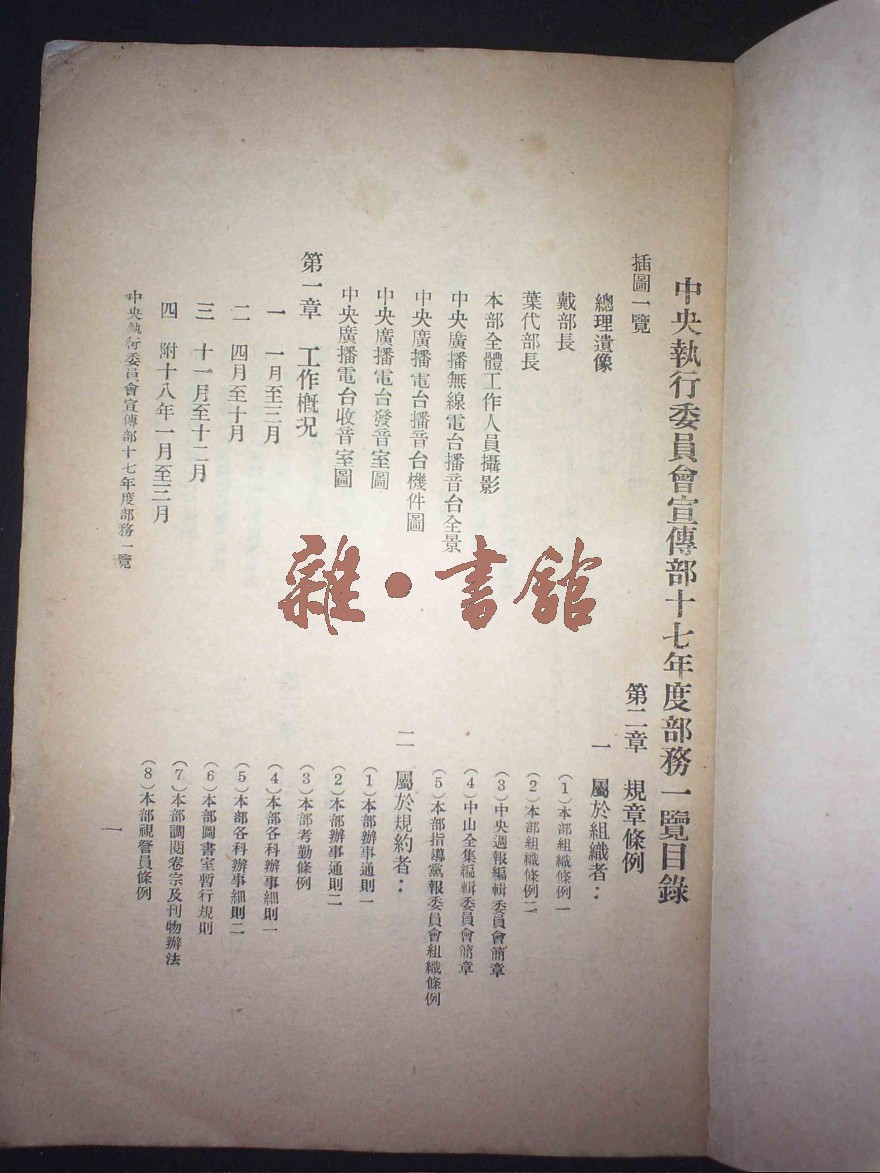 中央執行委員會宣傳部十七年度部務一覽目錄
插圖一覽
總理遺像
戴部長
葉代部長
本部全體工作人員攝影
中央廣播無線電台播音台全景
中央廣播電台播音台機件圖
中央廣播電台發音室圖
中央廣播電台收音室圖
第一章 工作概況
一 一月至三月
二 四月至十月
三 十一月至十二月
四 附十八年一月至三月
第二章 規章條例
一 屬於組織者：
（1）本部組織條例一
（2）本部組織條例二
（3）中央週報編輯委員會簡章
（4）中山全集編輯委員會簡章
（5）本部指導黨報委員會組織條例
二 屬於規約者：
（1）本部辦事通則一
（2）本部辦事通則二
（3）本部考勤條例
（4）本部各科辦事細則一
（5）本部各科辦事細則二
（6）本部圖書室暫行規則
（7）本部調閱卷宗及刊物辦法
（8）本部視察員條例
中央執行委員會宣傳部十七年度部務一覽
一
雜·書館